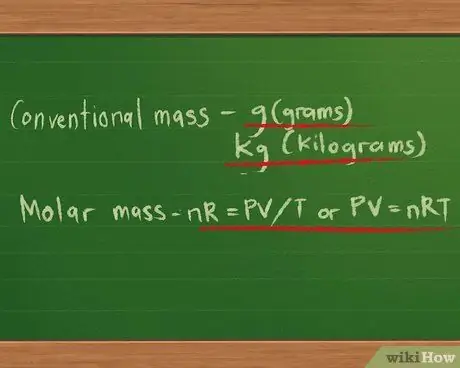 Conventional mass - g (grams)
kg (kilograms)
Molar mass - nR = PV/T or PV = nRT
wikiHow